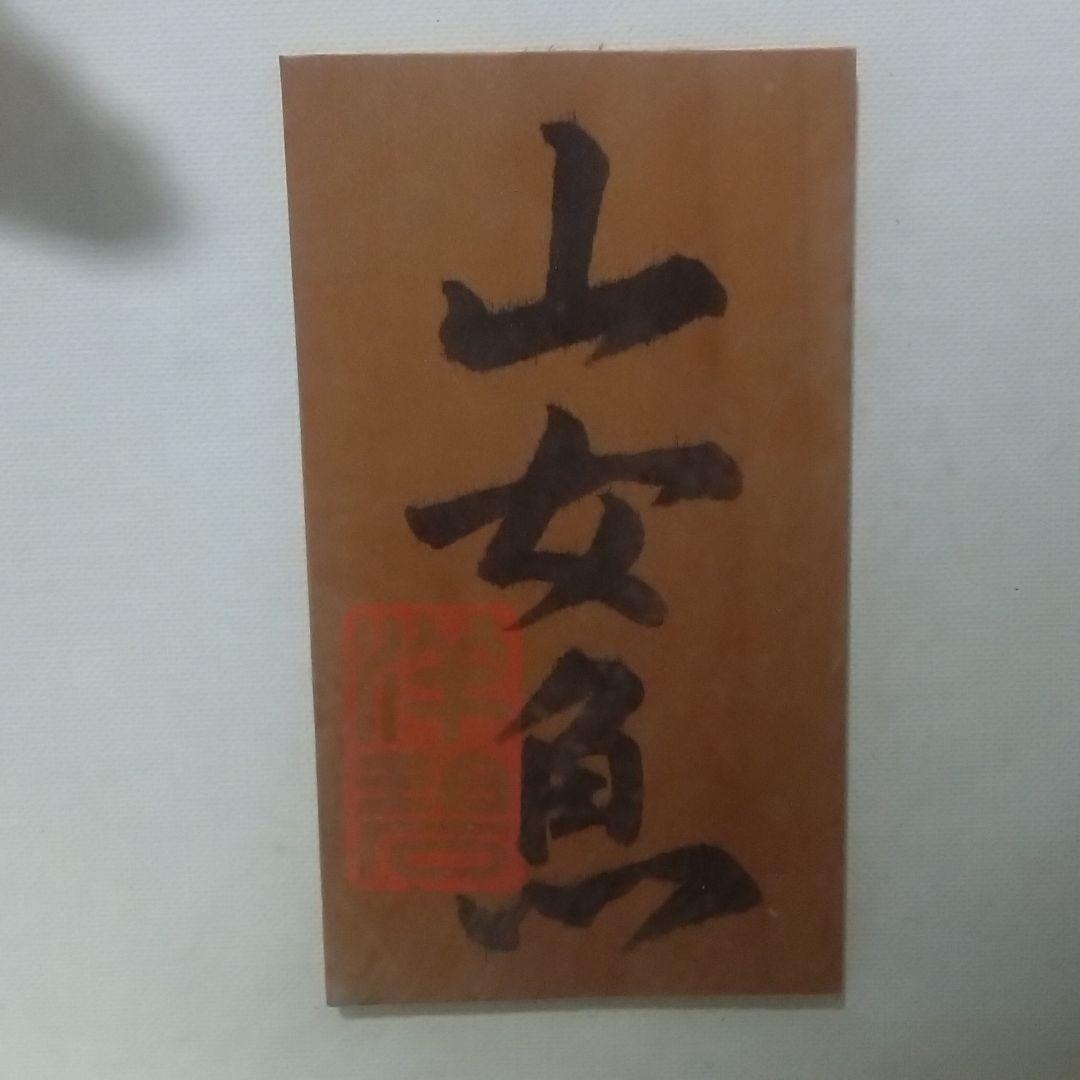 山女魚